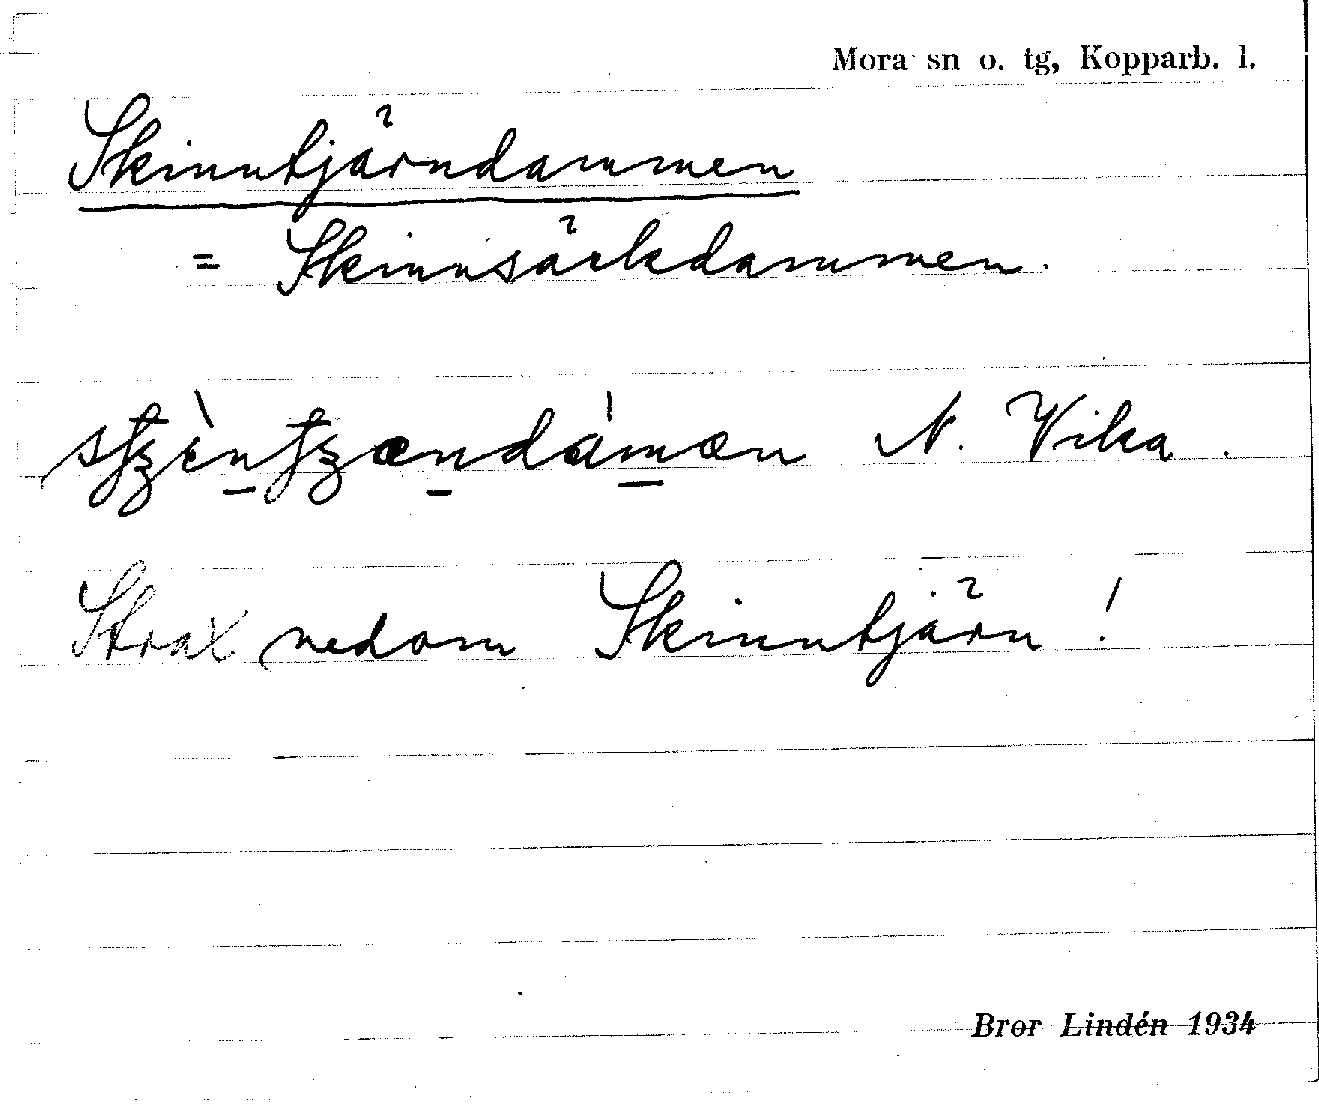 Mora sn o. tg, Kopparb. l.
Skinntjärndammen
= Skinnsäckdammen.
N. Vika.
Strax nedom Skinntjärn!
Bror Lindén 1934